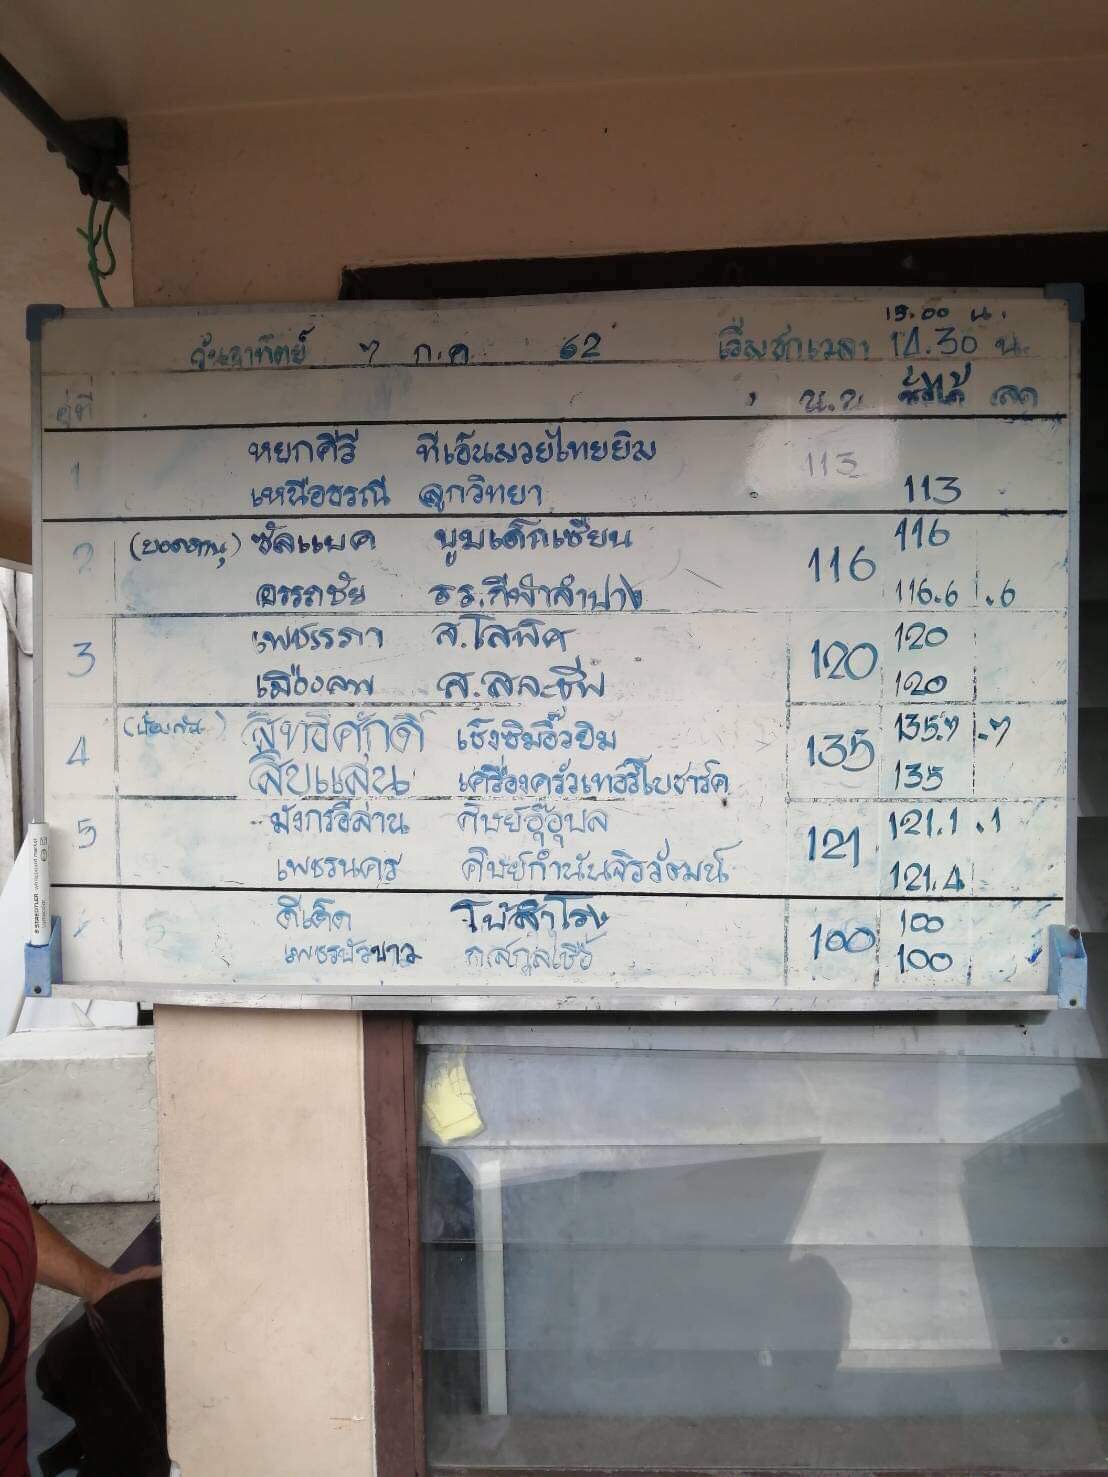 15.00 น.
วันอาทิตย์ 7 ก.ค. 62 เริ่มชกเวลา 14.30 น.
คู่ที่ น.น ชั่งได้ ลด
1 หยกศิรี ทีเอ็นมวยไทยยิม 113
เหนือธรณี ลูกวิทยา 113
2 ซัลแบค พูมเด็กเซียน 116 116
อรรถชัย ธร.กีฬาลำปาง 116.6 .6
3 เพชรรภา ส.โสพิศ 120 120
เมืองลพ ส.สละชีพ 120
4 สิทธิศักดิ์ เช็งซิมอิ้วยิม 135 135.7 .7
สิบแสน เครื่องครัวเทอร์โบชาร์ค 135
5 มังกรอีสาน ศิษย์อุ๊อุบล 121 121.1 .1
เพชรนคร ศิษย์กำนันจิรวัฒน์ 121.4
ดีเด็ด โบ้สำโรง 100 100
เพชรบัวขาว 100